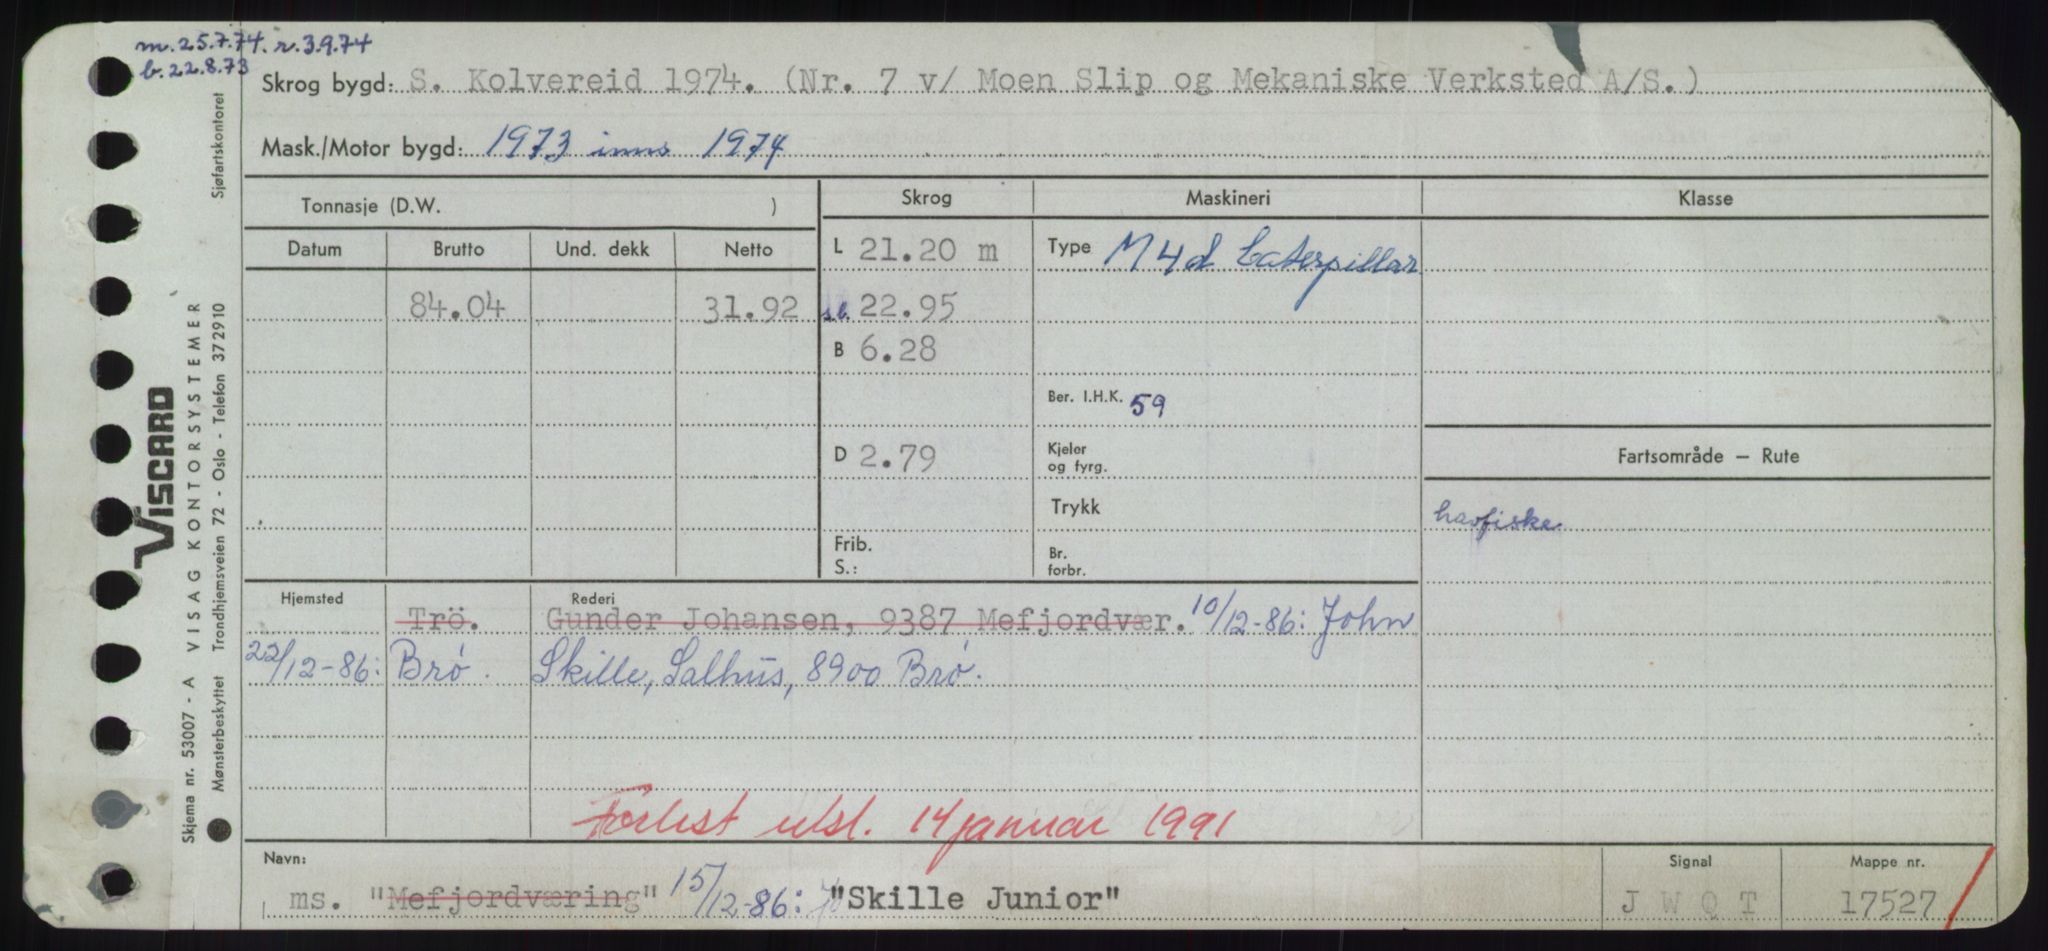 m. 25.7.74. r. 3.9.74
b. 22.8.73
Skrog bygd: S. Kolvereid 1974. (Nr. 7 v/ Moen Slip og Mekaniske Verksted A/S.)
Mask./Motor bygd: 1973 inns 1974
Tonnasje (D.W. )
Skrog
Maskineri
Klasse
Datum Brutto Und. dekk Netto
L 21.20 m
Type M4d Caterpillar
84.04 31.92
sl. 22.95
B 6.28
Ber. I.H.K. 59
D 2.79
Kjeler
og fyrg.
Fartsområde – Rute
Trykk
havfiske
Frib.
S.:
Br.
forbr.
Hjemsted
Rederi
Trö. Gunder Johansen, 9387 Mefjordvær. 10/12-86: John
22/12-86: Brø. Skille, Salhus, 8900 Brø.
Forlist utsl. 14 januar 1991
Navn:
Signal
Mappe nr.
ms. "Mefjordværing" 15/12-86: "Skille Junior"
J W Q T
17527
VISCARD
Skjema nr. 53007 - A VISAG KONTORSYSTEMER Sjøfartskontoret
Mønsterbeskyttet Trondhjemsveien 72 - Oslo - Telefon 372910